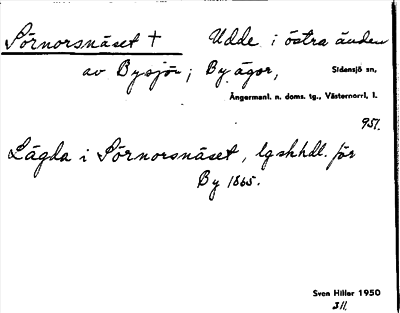 Sörnorsnäset + Udde i östra änden
av Bysjön; By ägor, Sidensjö sn,
Ångermanl. n. doms. tg., Västernorrl. l.
951.
Lägda i Sörnorsnäset, lgskhdl. för
By 1865.
Sven Hiller 1950
311.